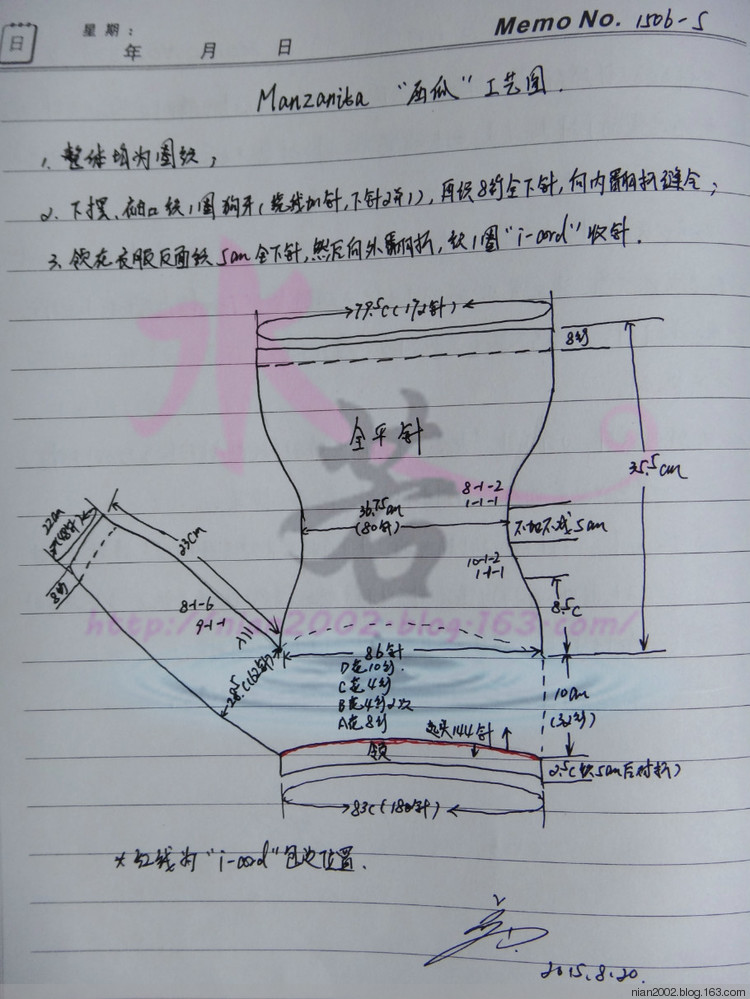 日
星期:
年 月 日
Memo No. 1506-5
Manzanita “西瓜”工艺图.
1、整体均为圈织;
2、下摆、袖口织1圈狗牙(绕线加针,下针2并1),再织8行全下针,向内翻折缝合;
3、领在衣服反面织5cm全下针,然后向外翻折,织1圈“i-cord”收针.
79.5C(172针)
8行
全平针
35.5cm
8-1-2
1-1-1
36.75cm
(80针)
不加不减5cm
10-1-2
1-1-1
8.5C
22cm
(48针)
8行
23cm
8-1-6
9-1-1
28.5C(62针)
86针
D花10行
C花4行
B花4行2次
A花8行
10cm
(32行)
起头144针
领
2.5C(织5cm后对折)
83C(180针)
*红线为“i-cord”包边位置.
2015.8.20.
水若
http://nian2002.blog.163.com/
nian2002.blog.163.com